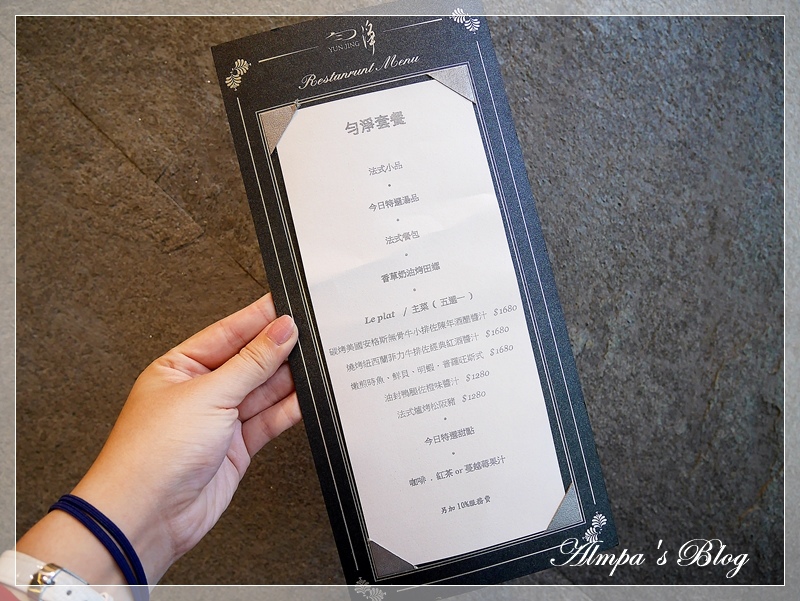 淨
YUN JING
Restanrunt Menu
勻淨套餐
法式小品
今日特選湯品
法式餐包
香草奶油烤田螺
Le plat / 主菜 ( 五選一 )
碳烤美國安格斯無骨牛小排佐陳年酒醋醬汁 $1680
燒烤紐西蘭菲力牛排佐經典紅酒醬汁 $1680
嫩煎時魚、鮮貝、明蝦、普羅旺斯式 $1680
油封鴨腿佐橙味醬汁 $1280
法式爐烤松阪豬 $1280
今日特選甜點
咖啡 . 紅茶 or 蔓越莓果汁
另加 10%服務費
Almpa's Blog